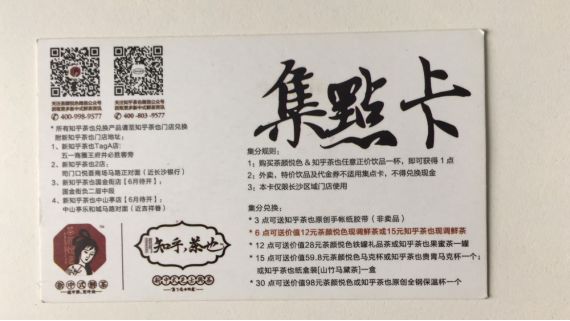 集點卡
关注茶颜悦色微信公众号
获取更多新中式鲜茶资讯
400-998-9577
关注知乎茶也微信公众号
获取更多新中式鲜茶资讯
400-803-9577
* 所有知乎茶也兑换产品请至知乎茶也门店兑换
附新知乎茶也门店地址:
1、新知乎茶也TagA店:
五一商圈王府井必胜客旁
2、新知乎茶也2店:
司门口悦荟商场马路正对面（近长沙银行）
3、新知乎茶也国金街店【6月待开】:
国金街负二层中段
4、新知乎茶也中山亭店【6月待开】:
中山亭乐和城马路正对面（近吉祥巷）
集分规则:
1；购买茶颜悦色 & 知乎茶也任意正价饮品一杯，即可获得 1 点
2；外卖、特价饮品及代金券不适用集点卡，不得兑换现金
3；本卡仅限长沙区域门店使用
集分兑换:
* 3 点可送知乎茶也原创手帐纸胶带（非卖品）
* 6 点可送价值12元茶颜悦色现调鲜茶或15元知乎茶也现调鲜茶
* 12 点可送价值28元茶颜悦色铁罐礼品茶或知乎茶也果蜜茶一罐
* 15 点可送价值59.8元茶颜悦色马克杯或知乎茶也贵青马克杯一个;
或知乎茶也纸盒装[山竹马黛茶]一盒
* 30 点可送价值98元茶颜悦色或知乎茶也原创全钢保温杯一个
新中式鲜茶
知乎，茶也